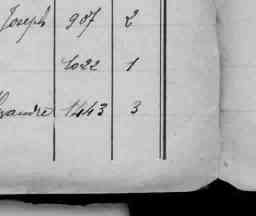 Joseph 907 2
1022 1
xandre 1443 3